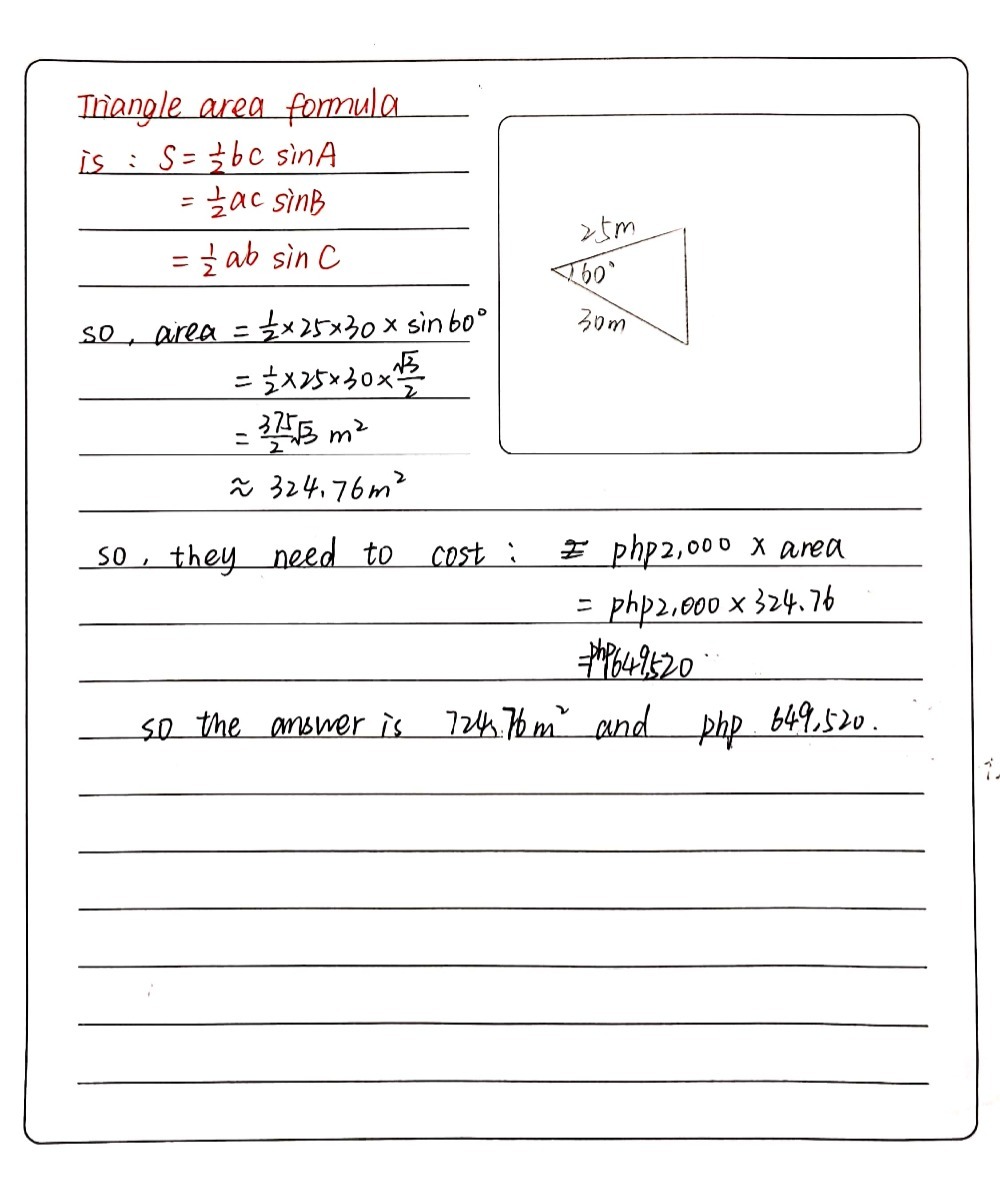 Triangle area formula
is : S = ½bc sinA
= ½ac sinB
= ½ab sin C
25m
60°
30m
so, area = ½×25×30 × sin60°
= ½×25×30×√3/2
= 375/2√3 m²
≈ 324.76m²
so, they need to cost : = php2,000 × area
= php2,000 × 324.76
=php649,520
so the answer is 724.76m² and php 649,520.